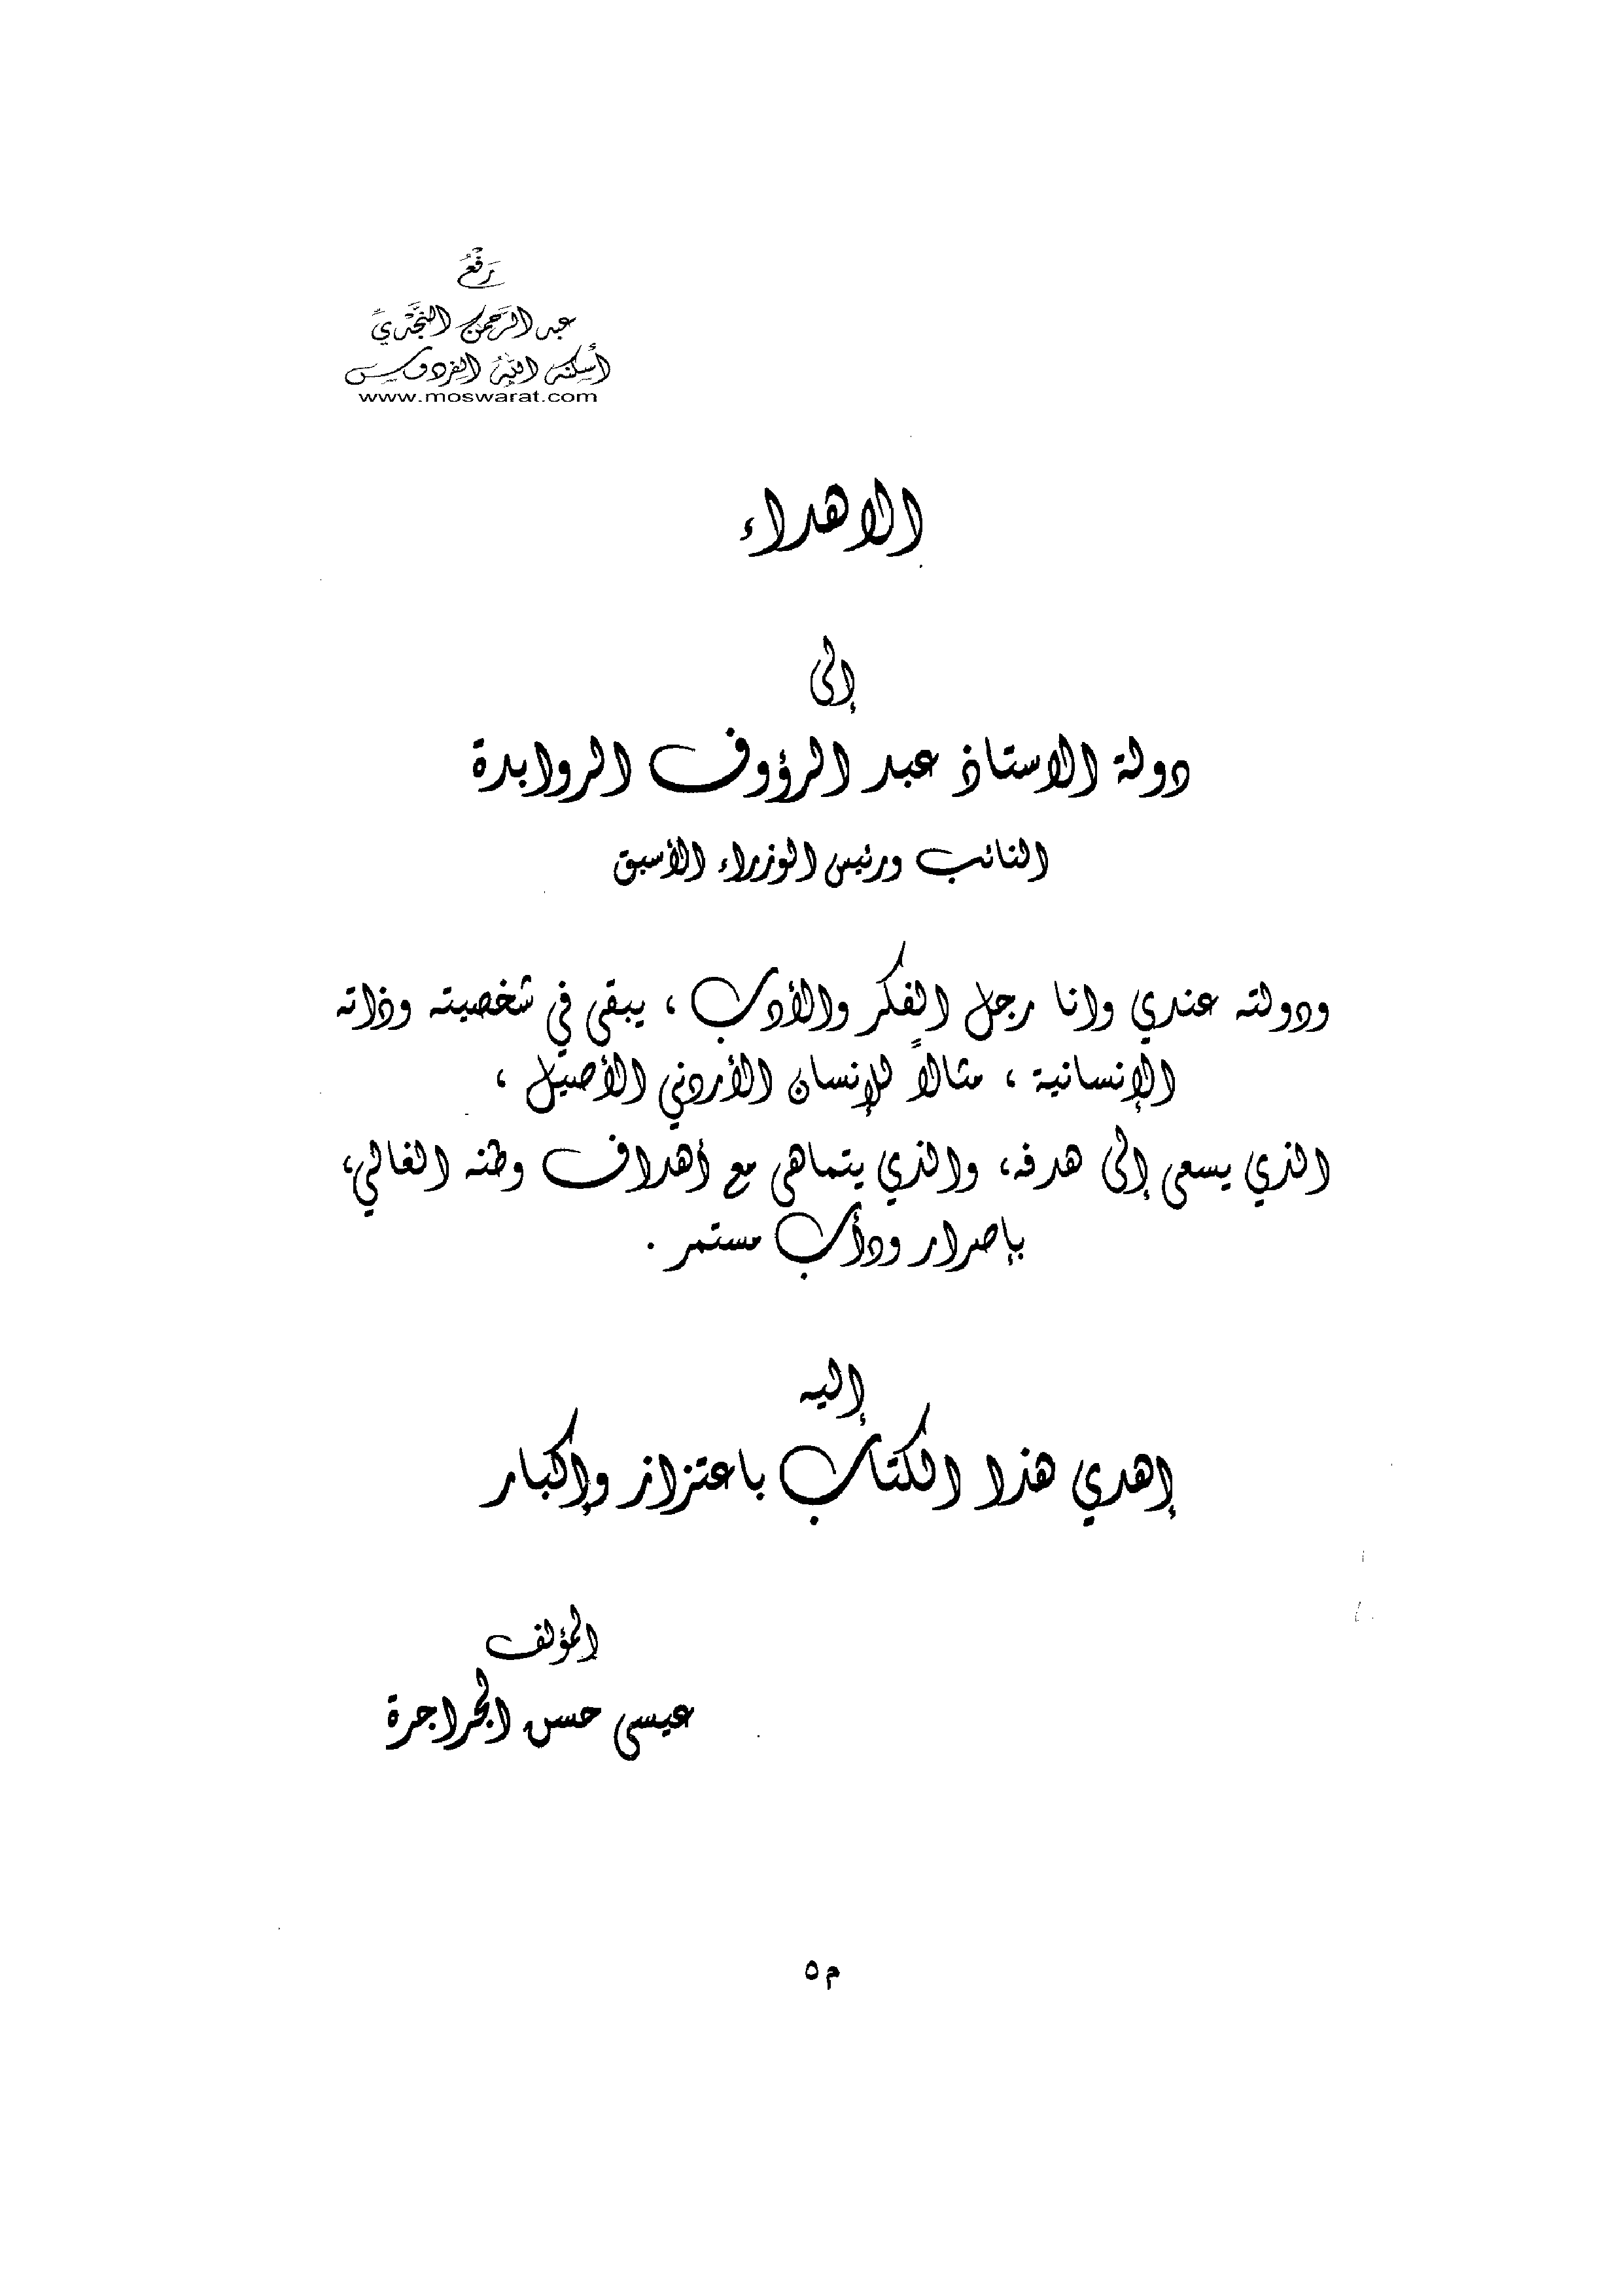 رَفْعُ
عبد الرَّحمن النَّجْديِّ
أسكنه الله الفردوس
www.moswarat.com
الاهداء
إلى
دولة الاستاذ عبد الرؤوف الروابدة
النائب ورئيس الوزراء الأسبق
ودولته عندي وانا رجل الفكر والأدب ، يبقى في شخصيته وذاته
الإنسانية ، مثالاً للإنسان الأردني الأصيل ،
الذي يسعى إلى هدفه، والذي يتماهى مع أهداف وطنه الغالي،
بإصرار ودأب مستمر .
إليه
إهدي هذا الكتاب باعتزاز وإكبار
المؤلف
عيسى حسن الجراجرة
م٥